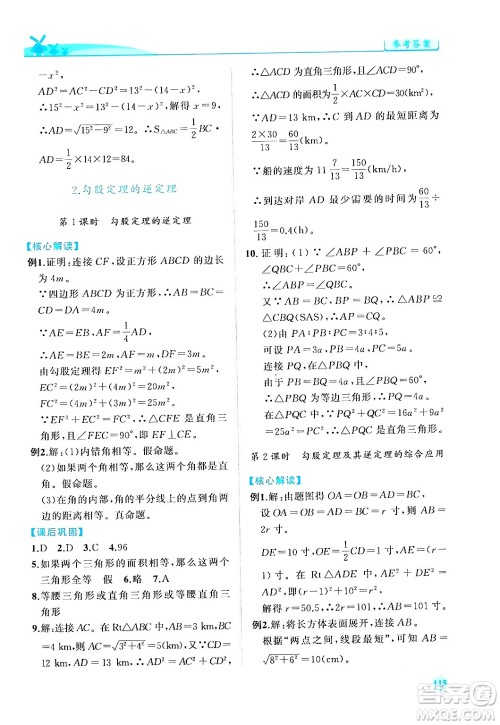 参考答案
−x)².
AD²=AC²−CD²=13²−x²,
∴15²−(14−x)²=13²−x²,解得x=5,
∴15²−x²=13²−x²,解得
∴AD=√15²−9²=12.∴S△ABC=1/2BC·
AD=1/2×14×12=84.
2.勾股定理的逆定理
第1课时 勾股定理的逆定理
【核心解读】
例1.证明:连接CF,设正方形ABCD的边长
为4m.
∵四边形ABCD为正方形,
∴AB=BC=CD=DA=4m.
∵AE=EB,AF=1/4AD,
∴AE=EB=2m,AF=m.
由勾股定理得EF²=(2m)²+m²=5m²,
EC²=(2m)²+(4m)²=20m²,
FC²=(4m)²+(3m)²=25m².
∵EF²+EC²=FC²,∴△CFE是直角三
角形,∴∠FEC=90°,即EF⊥CE.
例2.解:(1)内错角相等.假命题.
(2)如果两个角相等,那么这两个角是直
角.假命题.
(3)在角的内部,角的平分线上的点到角的
两边距离相等.真命题.
【课后巩固】
1.D 2.D 3.C 4.96
5.如果两个三角形的面积相等,那么这两个
三角形全等 假 6.略 7.A
8.等腰三角形或直角三角形或等腰直角三
角形
9.解:连接AC.在Rt△ABC中,AB=3km,BC=
4km,∴AC=√3²+4²=5(km).
∵CD=12km,AD=13km,
∴AC²+CD²=AD²,
∴△ACD为直角三角形,∠ACD=90°.
∴△ACD的面积=1/2AC·CD=30(km²).
∵AD=13km,∴C到AD的最短距离为
2×30/13=60/13(km).
∵船的速度为11km/h,
∴到达对岸AD最少需要的时间为60/13÷
150/13=0.4(h).
10.证明:(1)∵∠ABP+∠PBC=60°,
∠QBC+∠PBC=60°,
∴∠ABP=∠QBC.
又∵AB=BC,BP=BQ,∴△ABP≌
△CBQ(SAS).
(2)由PA:PB:PC=3:4:5,
可设PA=3a,PB=4a,PC=5a.
连接PQ.
由于∠PBQ=60°,BP=BQ,
∴△PBQ为正三角形.
∴PQ=4a.
∵在△PQC中,PQ²+QC²=16a²+
9a²=25a²=PC²,∴△PQC是直角三角形.
第2课时 勾股定理及其逆定理的综合应用
【核心解读】
例1.解:由题图可得OA=OB=OD=OC,
∵OA=OB=OD=r,∴OE=r−2.
∵DE=1/2CD=4,
∴在Rt△OED中,OE²+DE²=OD²,
即(r−2)²+4²=r²,
解得r=5,∴AB=2r=10.
例2.解:将长方体表面展开,连接AB,
根据“两点之间,线段最短”,可知AB=
√8²+6²=10(cm).
115